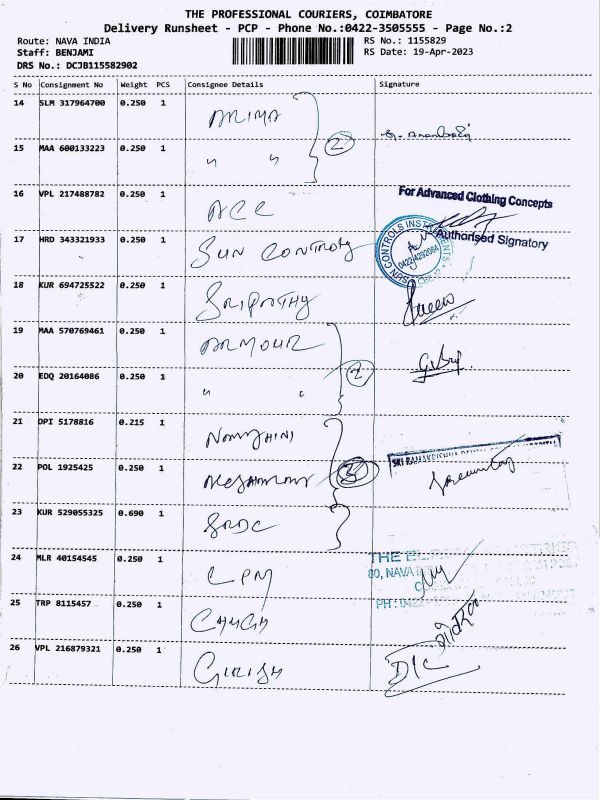 THE PROFESSIONAL COURIERS, COIMBATORE
Delivery Runsheet - PCP - Phone No.:0422-3505555 - Page No.:2
Route: NAVA INDIA RS No.: 1155829
Staff: BENJAMI RS Date: 19-Apr-2023
DRS No.: DCJB115582902
S No Consignment No Weight PCS Consignee Details Signature
14 SLM 317964700 0.250 1 ARIMA
15 MAA 600133223 0.250 1 " " 2
For Advanced Clothing Concepts
16 VPL 217488782 0.250 1 ACC
Authorised Signatory
17 HRD 343321933 0.250 1 SUN CONTROLS
SUN CONTROLS INSTRUMENTS
18 KUR 694725522 0.250 1 SRIPATHY
19 MAA 570769461 0.250 1 ARMOUR
20 EDQ 20164086 0.250 1 " " 2
21 DPI 5178816 0.215 1
22 POL 1925425 0.250 1 3
SRI RAMAKRISHNA DENTAL
23 KUR 529055325 0.690 1 SRDC
24 MLR 40154545 0.250 1 CPM
THE
80, NAVA
PH : 0422
25 TRP 8115457 0.250 1
26 VPL 216879321 0.250 1 GIRISH